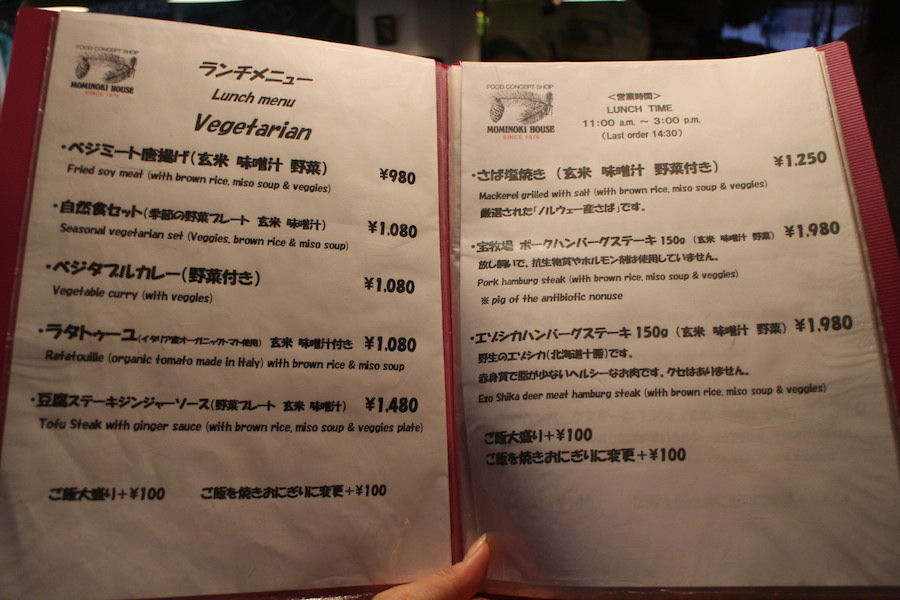 FOOD CONCEPT SHOP
MOMINOKI HOUSE
SINCE 1976
ランチメニュー
Lunch menu
Vegetarian
・ベジミート唐揚げ(玄米 味噌汁 野菜) ¥980
Fried soy meat (with brown rice, miso soup & veggies)
・自然食セット(季節の野菜プレート 玄米 味噌汁) ¥1.080
Seasonal vegetarian set (Veggies, brown rice & miso soup)
・ベジタブルカレー(野菜付き) ¥1.080
Vegetable curry (with veggies)
・ラタトゥーユ(イタリア産オーガニックトマト使用) 玄米 味噌汁付き ¥1.080
Ratatouille (organic tomato made in Italy) with brown rice & miso soup
・豆腐ステーキジンジャーソース(野菜プレート 玄米 味噌汁) ¥1,480
Tofu Steak with ginger sauce (with brown rice, miso soup & veggies plate)
ご飯大盛り+¥100 ご飯を焼きおにぎりに変更+¥100
FOOD CONCEPT SHOP
MOMINOKI HOUSE
SINCE 1976
<営業時間>
LUNCH TIME
11:00 a.m. ～ 3:00 p.m.
(Last order 14:30)
・さば塩焼き (玄米 味噌汁 野菜付き) ¥1.250
Mackerel grilled with salt (with brown rice, miso soup & veggies)
厳選された「ノルウェー産さば」です。
・宝牧場 ポークハンバーグステーキ 150g (玄米 味噌汁 野菜) ¥1.980
放し飼いで、抗生物質やホルモン剤は使用していません。
Pork hamburg steak (with brown rice, miso soup & veggies)
※ pig of the antibiotic nonuse
・エゾシカハンバーグステーキ 150g (玄米 味噌汁 野菜) ¥1.980
野生のエゾシカ(北海道十勝)です。
赤身質で脂が少ないヘルシーなお肉です。クセはありません。
Ezo Shika deer meat hamburg steak (with brown rice, miso soup & veggies)
ご飯大盛り+¥100
ご飯を焼きおにぎりに変更+¥100